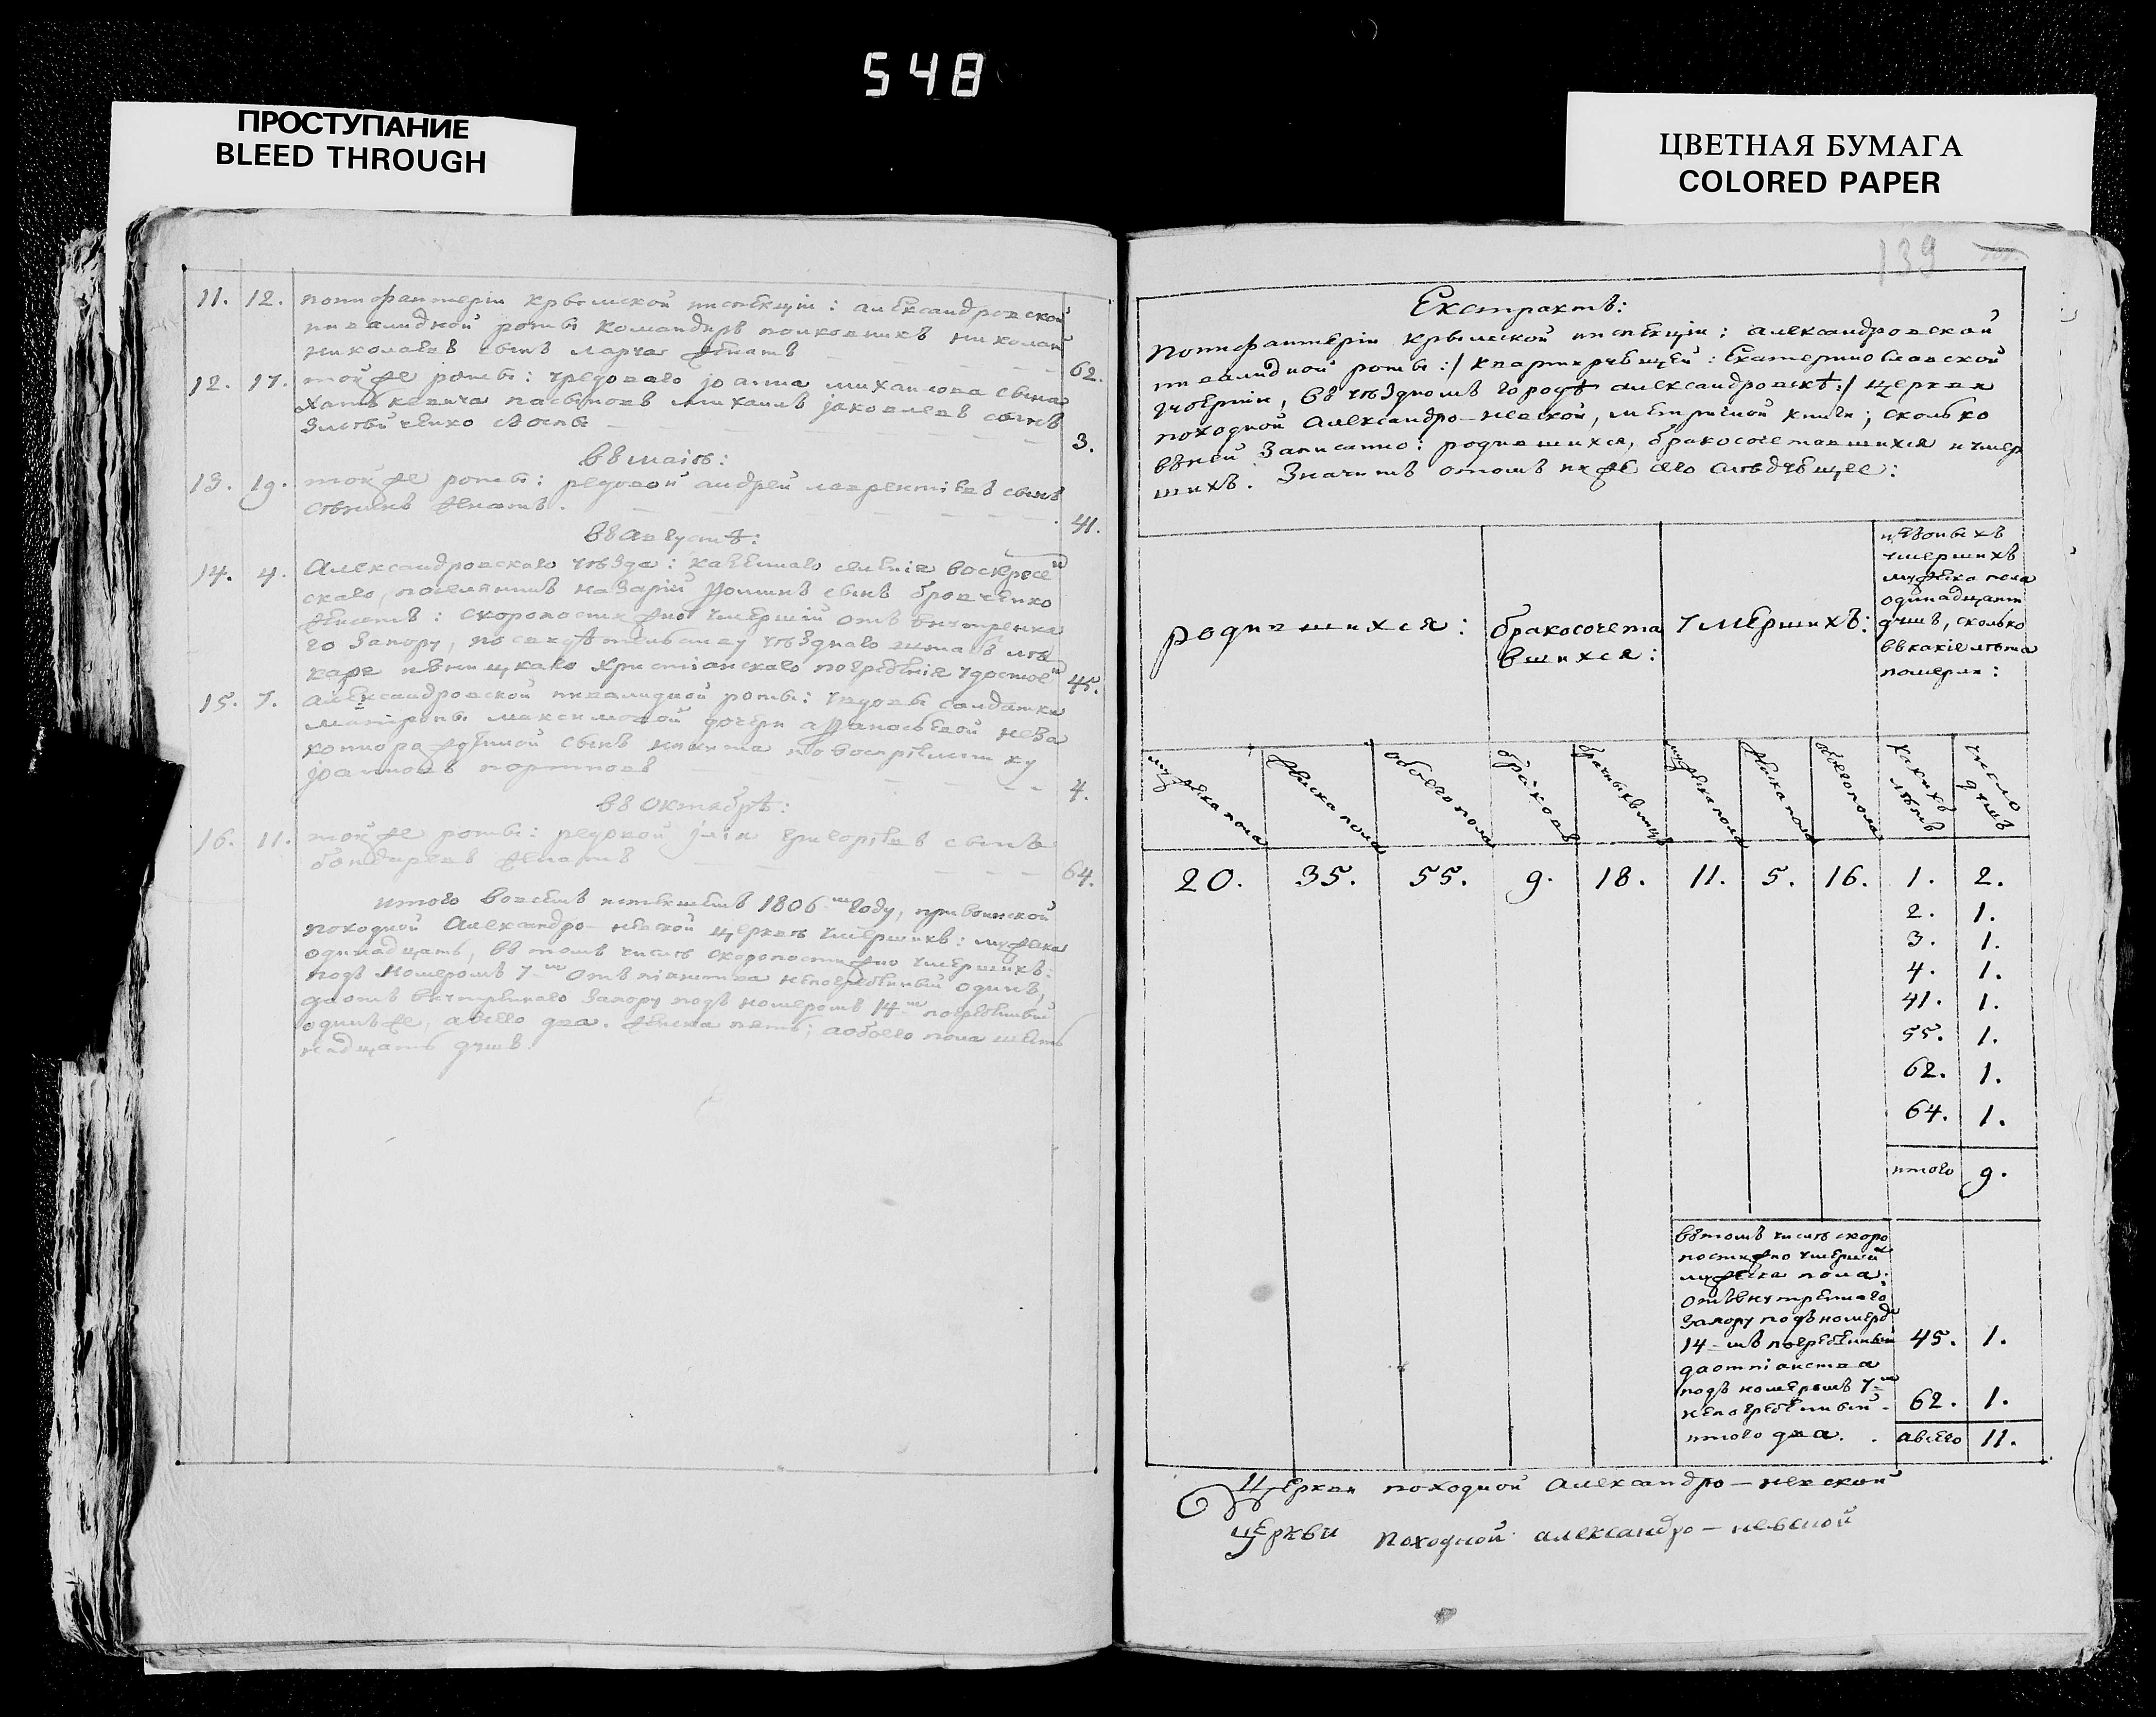 548
ПРОСТУПАНИЕ
BLEED THROUGH
ЦВЕТНАЯ БУМАГА
COLORED PAPER
11. 12. поинфантерiи крымской инспекцiи: александровской
инвалидной роты командиръ полковникъ николай
николаевъ сынъ ларча женатъ 62.
12. 17. той же роты: урядоваго iоанна михаилова сына
пасынокъ михаилъ iаковлевъ сынъ
3.
въ маiѣ:
13. 19. той же роты: редовой андрей лаврентiевъ сынъ
женатъ. 41.
въ августѣ:
14. 4. Александровскаго уѣзда: казеннаго селенiя воскресен
скаго, поселянинъ назарiй фоминъ сынъ бровченко
женатъ: скоропостижно умершiй отъ внутренна
го запору, по свидѣтельству уѣзднаго штабъ лѣ
каря христiанскаго погребенiя удостоен 45.
15. 7. александровской инвалидной роты: вдовы солдатки
матроны максимовой дочери афанасьевой неза
конно рожденной сынъ никита по воспрiемнику
iоанновъ 4.
въ октябрѣ:
16. 11. той же роты: редовой iлiя григорiевъ сынъ
бондаревъ женатъ 64.
итого во всемъ истекшемъ 1806-мъ году, при воинской
походной Александро-невской церкви умершихъ: мужеска
одинадцать, въ томъ числѣ скоропостижно умершихъ:
подъ номеромъ 7-мъ отъ пiянства непогребенный одинъ,
да отъ внутреннаго запору подъ номеромъ 14-мъ погребенный
одинъ же, а всего два. женска пять; а обоего пола шест
надцать душъ.
139
Екстрактъ:
поинфантерiи крымской инспекцiи: александровской
инвалидной роты:/ квартирующей: Екатеринославской
губернiи, въ уѣздномъ городѣ александровскѣ:/ церкви
походной александро-невской, метричной книги; сколько
въ ней записанно: родившихся, бракосочетавшихся и умер
шихъ. Значитъ о томъ ниже сего слѣдующее:
родившихся:
бракосочета
вшихся:
умершихъ:
умершихъ
мужеска пола
одинадцати
душъ, сколько
въ какiе лѣта
померли:
мужеска пола
женска пола
обоего пола
браковъ
мужеска пола
женска пола
обоего пола
какихъ лѣтъ
число душъ
20. 35. 55. 9. 18. 11. 5. 16. 1. 2.
2. 1.
3. 1.
4. 1.
41. 1.
55. 1.
62. 1.
64. 1.
итого 9.
въ томъ числѣ скоро
постижно умерши
мужеска пола:
отъ внутреннаго
запору подъ номеро
14-мъ погребенный 45. 1.
да от пiанства
подъ номеромъ 7-м
непогребенный 62. 1.
итого два. а всего 11.
Церкви походной александро-невской
церкви походной александро-невской